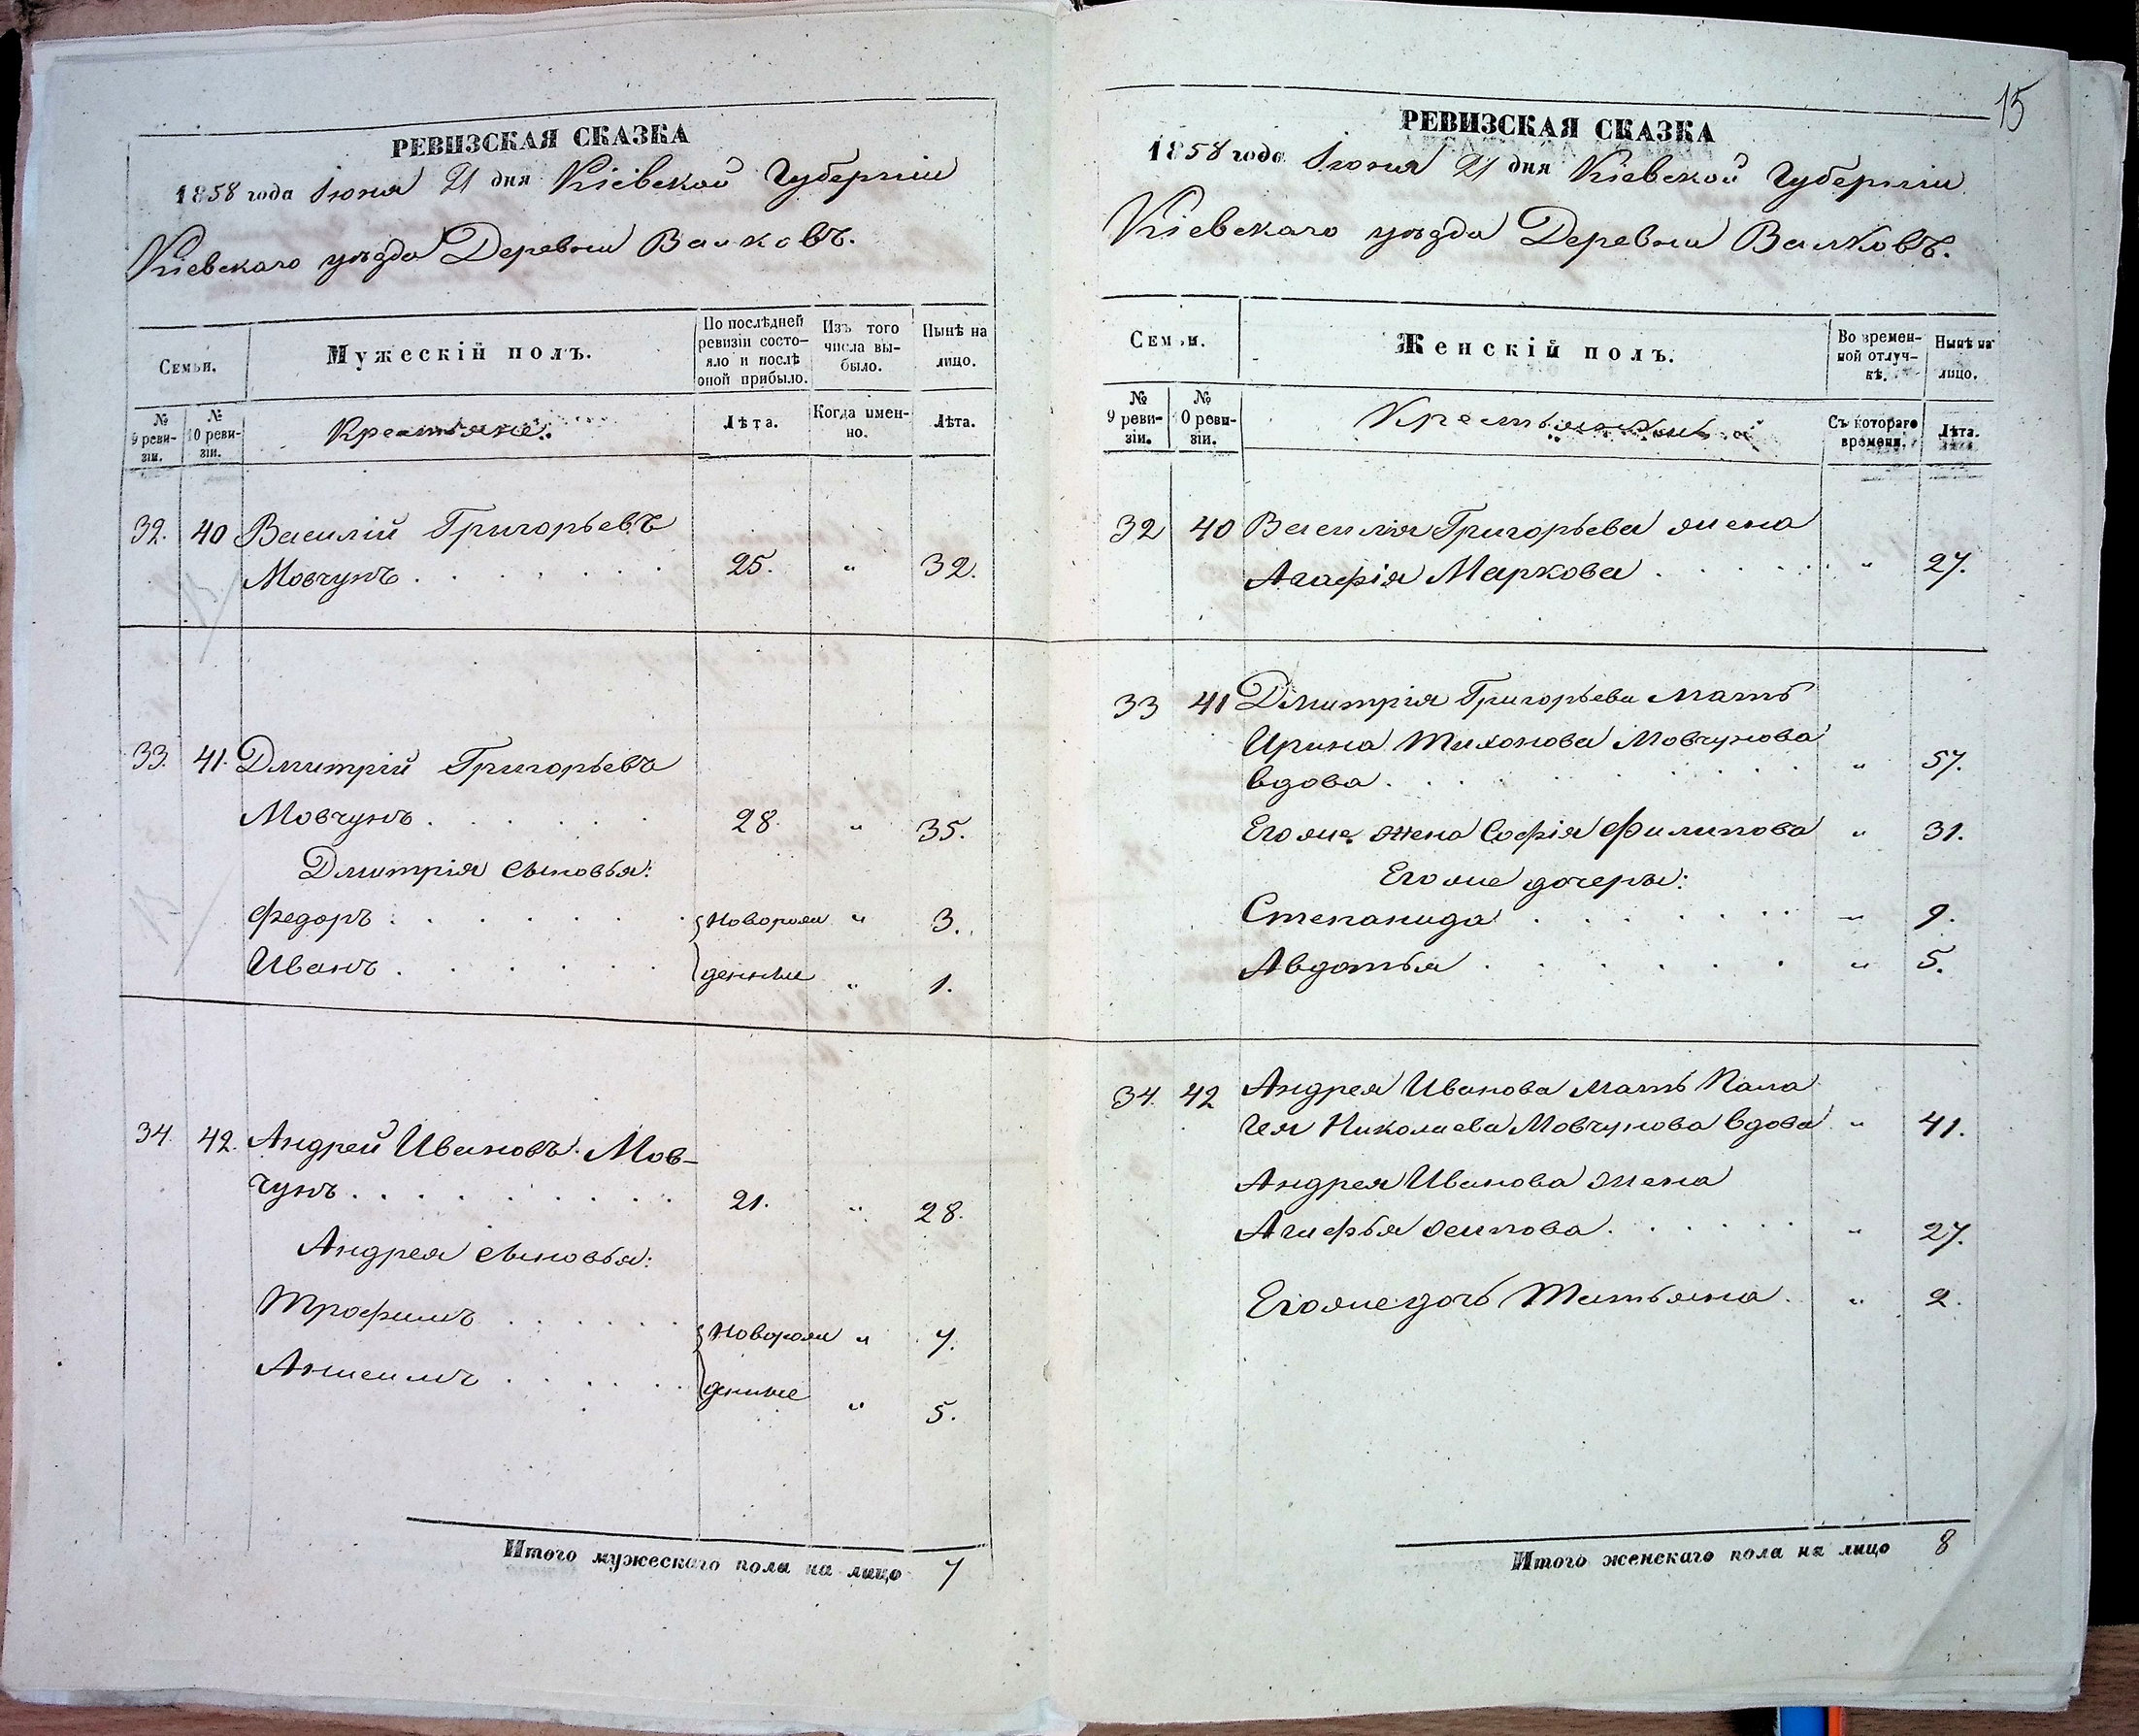 РЕВИЗСКАЯ СКАЗКА
1858 года Іюня 21 дня Кіевской Губерніи
Кіевскаго уѣзда Деревни Валковъ.
Семьи.
Мужескій полъ.
По послѣдней ревизіи состояло и послѣ оной прибыло.
Изъ того числа выбыло.
Нынѣ на лицо.
№ 9 ревизіи.
№ 10 ревизіи.
Крестьяне.
Лѣта.
Когда именно.
Лѣта.
32. 40 Василій Григорьевъ
Мовчунъ . . . . . . . 25. " 32.
33. 41. Дмитрій Григорьевъ
Мовчунъ . . . . . . 28. " 35.
Дмитрія сыновья:
Федоръ . . . . . . . новорож " 3.
Иванъ . . . . . . денные " 1.
34. 42. Андрей Ивановъ Мов-
чунъ . . . . . . . . . 21. " 28.
Андрея сыновья:
Трофимъ . . . . . . новорож " 7.
Анисимъ . . . . . . денные " 5.
Итого мужескаго пола на лицо 7
15
РЕВИЗСКАЯ СКАЗКА
1858 года Іюня 21 дня Кіевской Губерніи
Кіевскаго уѣзда Деревни Валковъ.
Семьи.
Женскій полъ.
Во временной отлучкѣ.
Нынѣ на лицо.
№ 9 ревизіи.
№ 0 ревизіи.
Съ котораго времени.
Лѣта.
32 40 Василія Григорьева жена
Агафія Маркова . . . . . . " 27.
33 41 Дмитрія Григорьева мать
Ирина Тихонова Мовчунова
вдова . . . . . . . . . " 57.
Его же жена Софія Филипова " 31.
Его же дочери:
Степанида . . . . . . . " 9.
Авдотья . . . . . . . " 5.
34. 42 Андрея Иванова мать Пала
гея Николаева Мовчунова вдова " 41.
Андрея Иванова жена
Агафья Осипова . . . . . . " 27.
Его же дочь Татьяна . " 2.
Итого женскаго пола на лицо 8